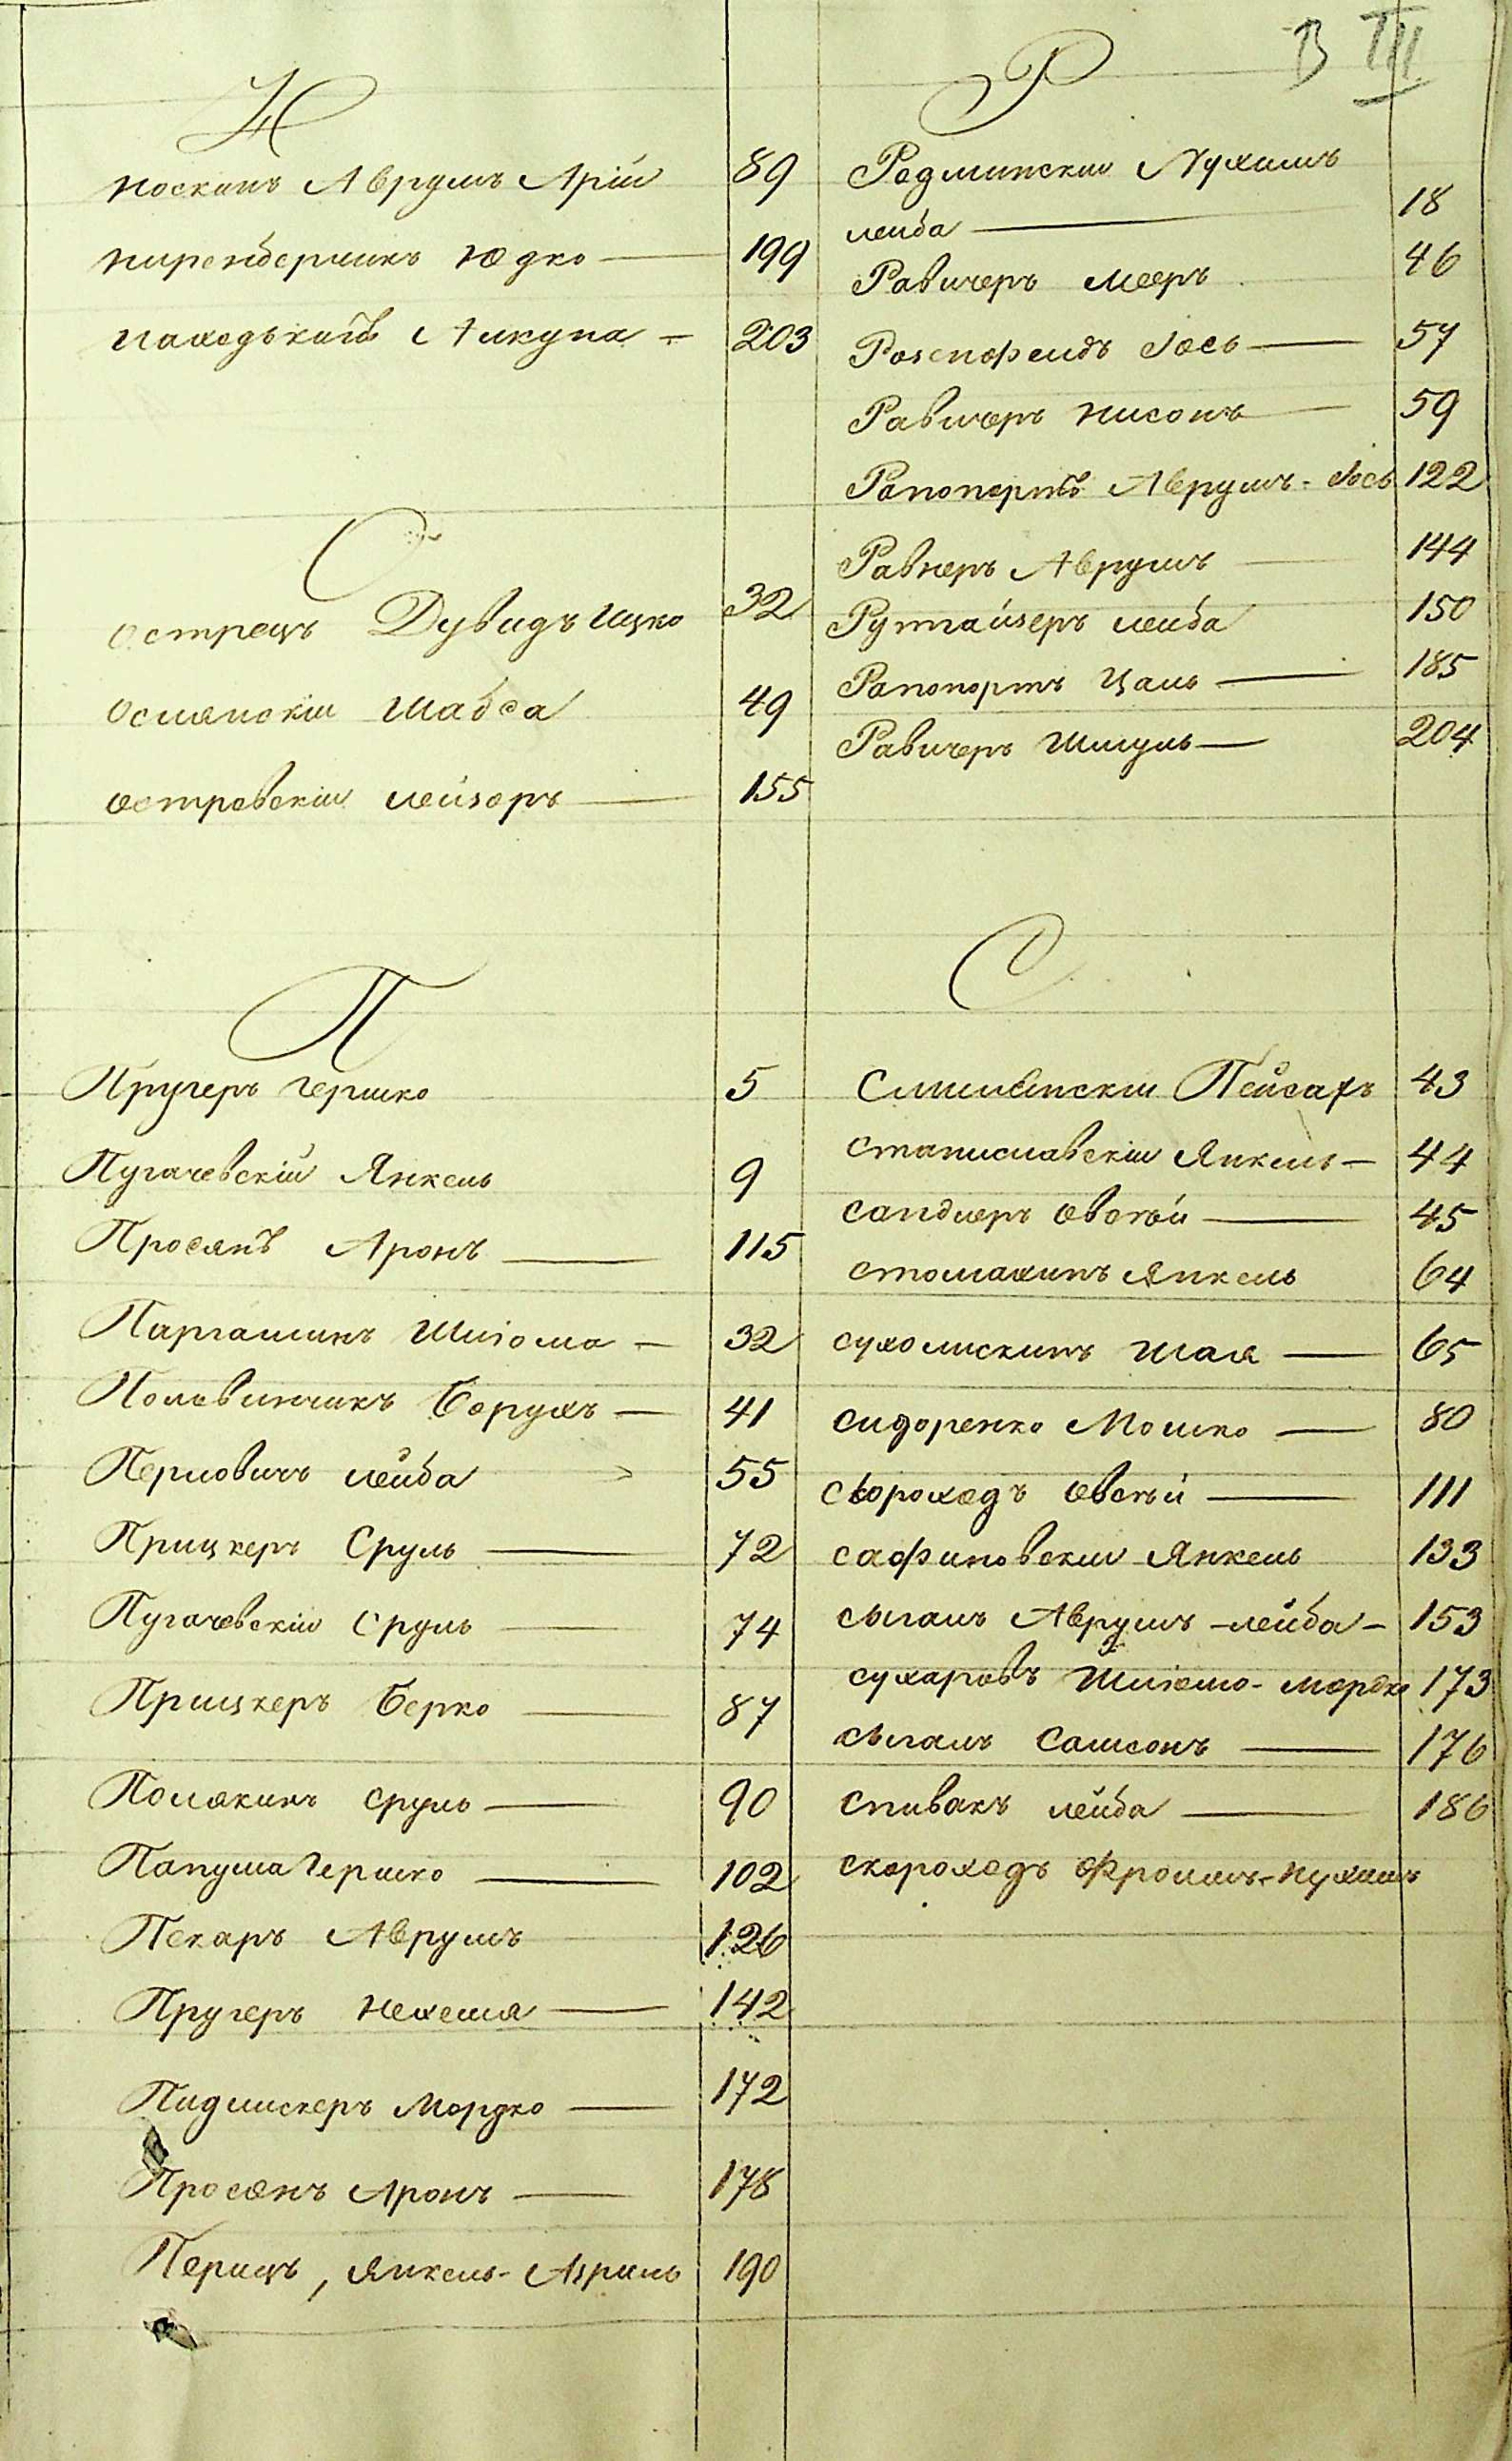 В III
Н
Носкинъ Аврумъ Арій 89
Ниренбергикъ Юдко — 199
Находькинъ Аикупа — 203
О
Острецъ Дувидъ Ицко 32
Ослянскій Шабса 49
Островскій Лейзеръ — 155
П
Пругеръ Гершко 5
Пугачевскій Янкель 9
Просянъ Аронъ — 115
Паргамикъ Шліома — 32
Половинчикъ Борухъ — 41
Перловичъ Лейба 55
Прицкеръ Сруль — 72
Пугачевскій Сруль — 74
Прицкеръ Берко — 87
Полякинъ Сруль — 90
Папуша Гершко — 102
Пекаръ Аврумъ 126
Пругеръ Нехемя — 142
Пидлискеръ Мордко — 172
Просянъ Аронъ — 178
Перицъ, Янкель-Азриль 190
Р
Радминскій Нухимъ
Лейба — 18
Равичеръ Мееръ 46
Розенфельдъ Іось — 57
Равичеръ Нисонъ — 59
Рапопортъ Аврумъ-Іось 122
Равнеръ Аврумъ — 144
Рутгайзеръ Лейба 150
Рапопортъ Цаль — 185
Равичеръ Шмуль — 204
С
Смилянскій Пейсахъ 43
Станиславскій Янкель — 44
Сандлеръ Овсѣй — 45
Стомахинъ Янкель 64
Сухолискинъ Шая — 65
Сидоренко Мошко — 80
Скороходъ Овсѣй — 111
Сафиновскій Янкель 133
Сыгалъ Аврумъ-Лейба — 153
Сухаровъ Шліомо-Мордко 173
Сыгалъ Самсонъ — 176
Спивакъ Лейба — 186
Скороходъ Фроимъ-Нухимъ